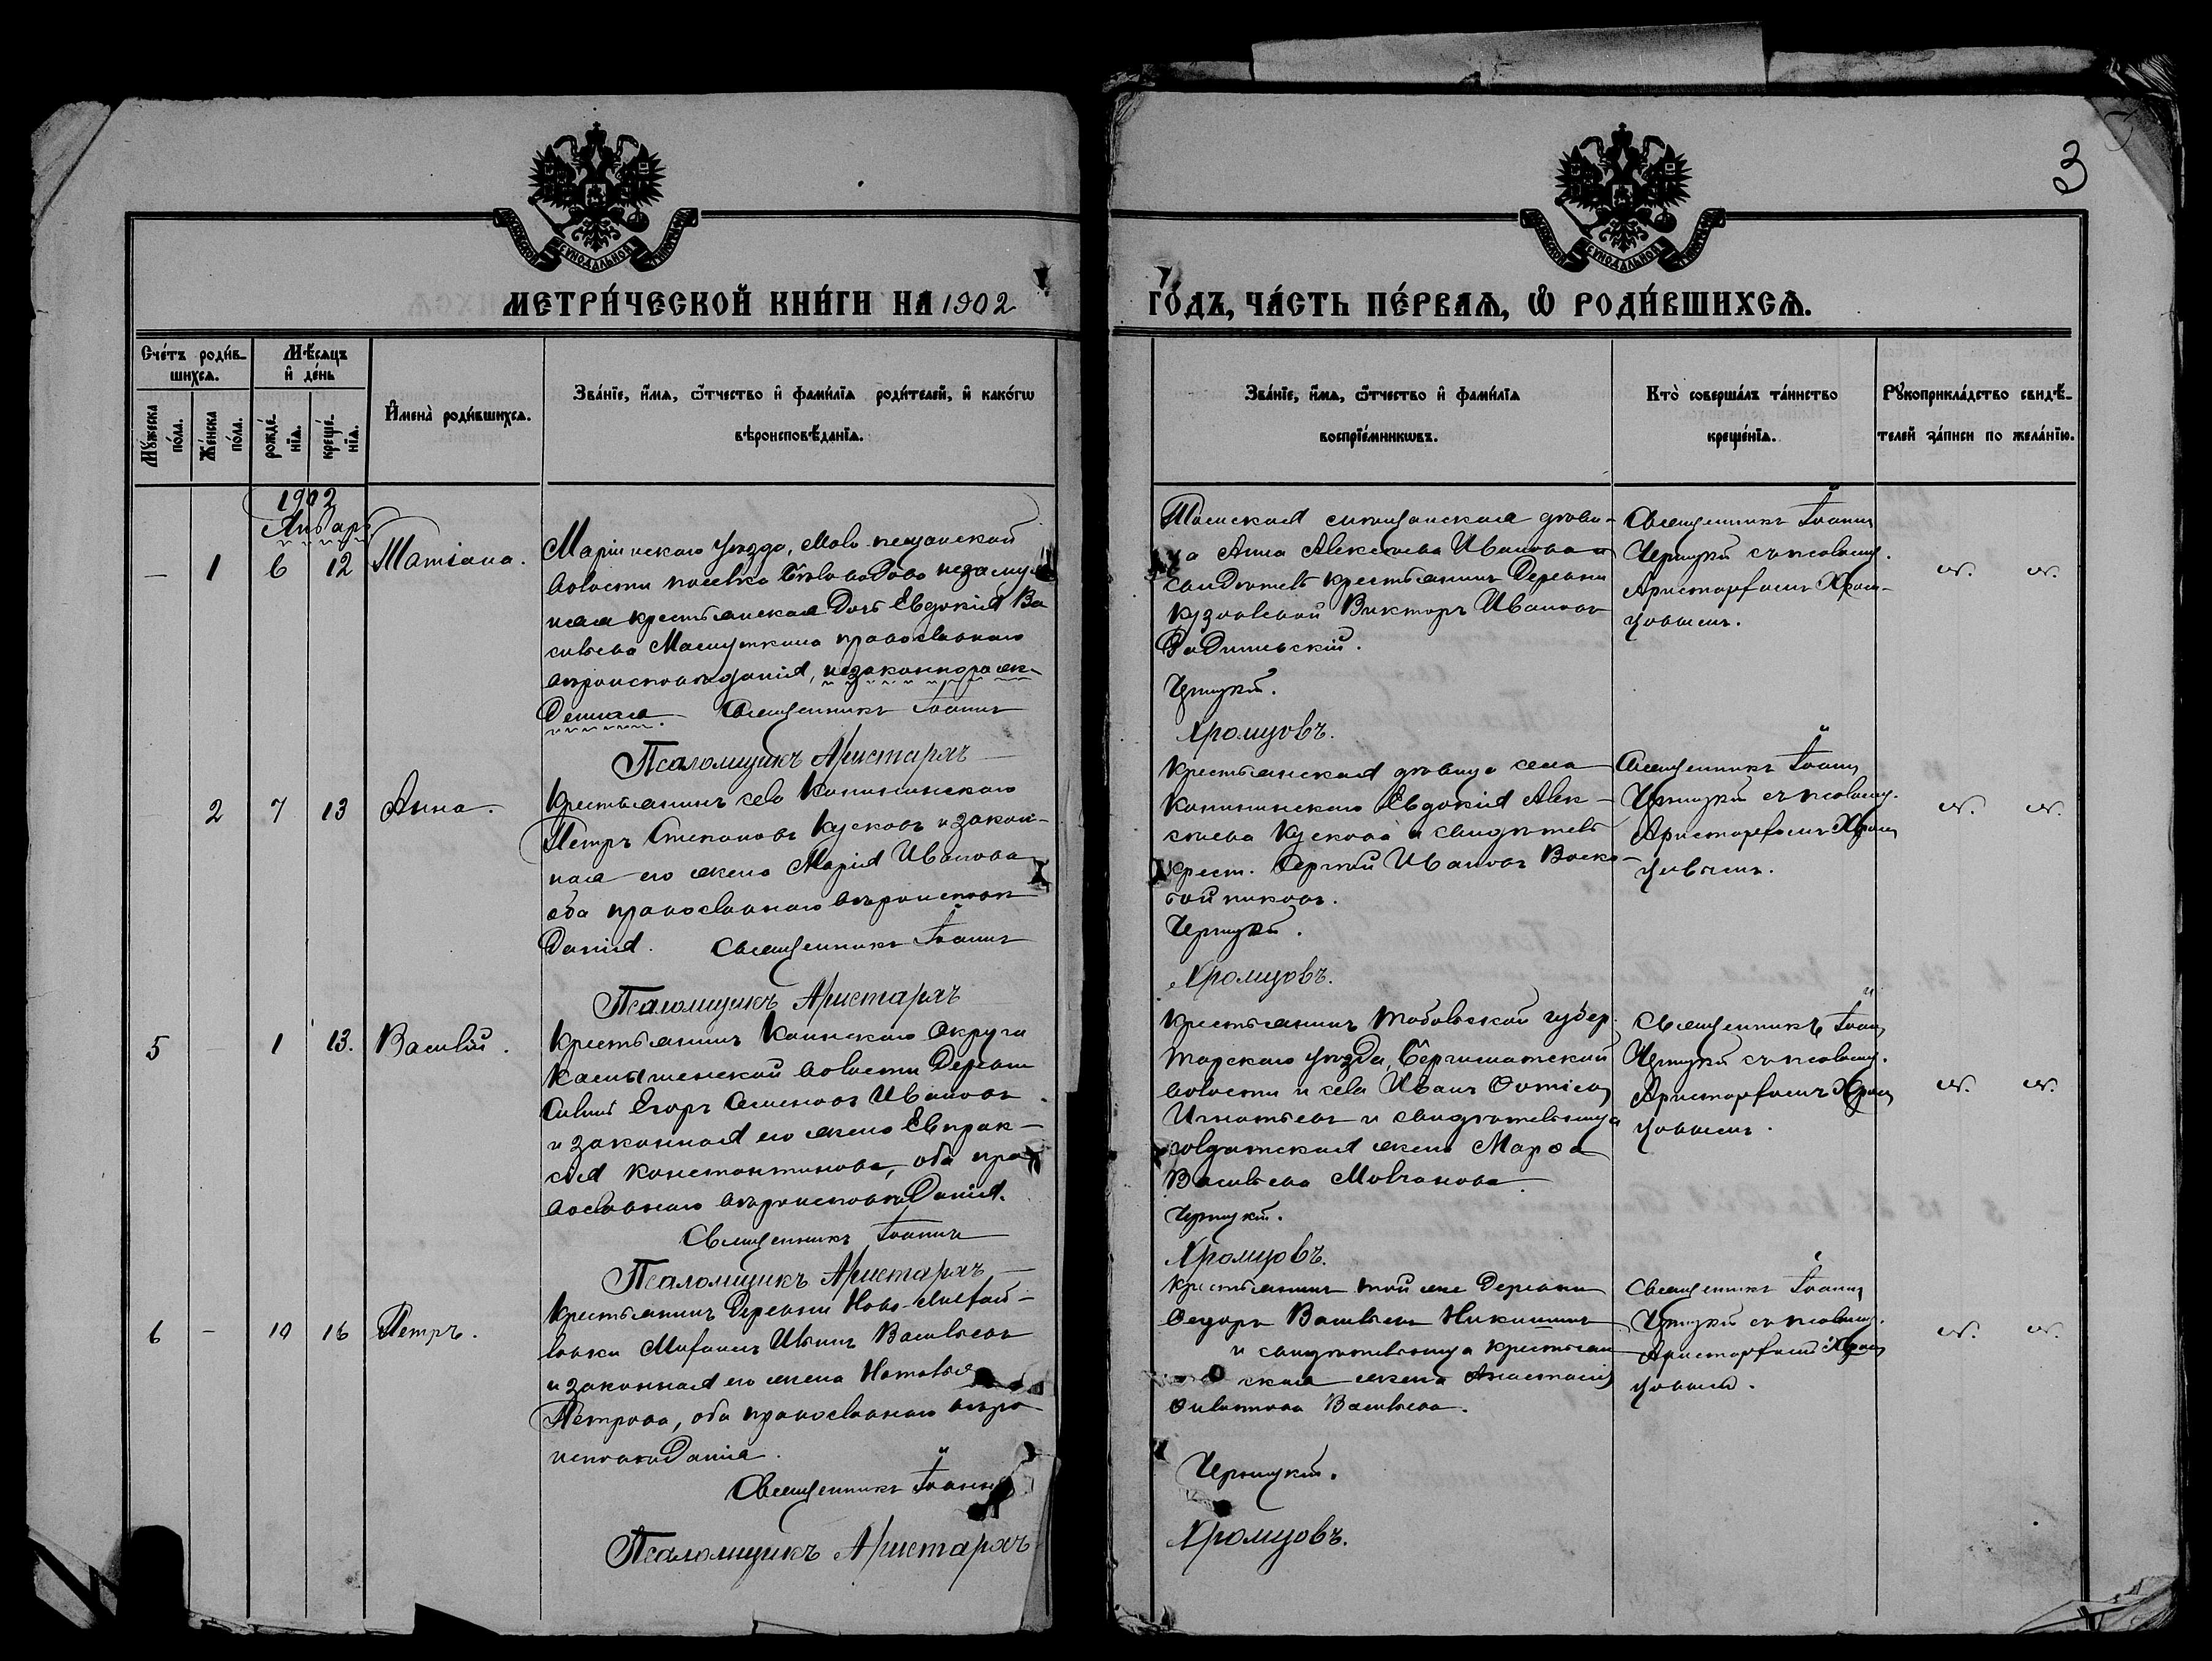 3
МЕТРИ́ЧЕСКОЙ КНИ́ГИ НА 1902
ГО́ДЪ, ЧА́СТЬ ПЕ́РВАѦ, Ѡ҆ РОДИ́ВШИХСѦ.
Сче́тъ роди́в-
шихсѧ.
Мꙋ́жеска
по́ла.
Же́нска
по́ла.
Мѣ́сѧцъ
и҆ де́нь
рожде́-
нїѧ.
креще́-
нїѧ.
И҆мена̀ роди́вшихсѧ.
Зва́нїе, и҆́мѧ, ѻ҆́тчество и҆ фамі́лїѧ роди́телей, и҆ како́гѡ
вѣроисповѣ́данїѧ.
Зва́нїе, и҆́мѧ, ѻ҆́тчество и҆ фамі́лїѧ
воспрїе́мникѡвъ.
Кто̀ соверша́лъ та́инство
креще́нїѧ.
Рꙋкоприкла́дство свидѣ́-
телей за́писи по жела́нїю.
1902
Январь
— 1 6 12 Татіана.
Маріинскаго уѣзда, Мало-песчанской
волости поселка незамуж
няя крестьянская дочь Евдокія Ва
сильева православнаго
вѣроисповѣданія, незаконнорож-
денная. Священникъ Іоаннъ
Псаломщикъ Аристархъ
Томская мѣщанская дѣви-
ца Анна Алексѣева Иванова и
свидѣтель крестьянинъ деревни
Викторъ Ивановъ
Черницкій.
Хромцовъ.
Священникъ Іоаннъ
Черницкій съ псаломщ.
Аристархомъ Хром-
цовымъ.
2 7 13 Анна.
Крестьянинъ села
Петръ Степановъ Кусковъ и закон-
ная его жена Марія Иванова
оба православнаго вѣроисповѣ
данія. Священникъ Іоаннъ
Псаломщикъ Аристархъ
Крестьянская дѣвица села
Евдокія Алек-
сѣева Кускова и свидѣтель
крест. Сергѣй Ивановъ Воско-
бойниковъ.
Черницкій.
Хромцовъ.
Священникъ Іоаннъ
Черницкій съ псаломщ.
Аристархомъ Хром
цовымъ.
5 1 13. Василій.
Крестьянинъ Каинскаго Округа
Камышенской волости деревни
Егоръ Семеновъ Ивановъ
и законная его жена Евпрак-
сія Константинова, оба пра
вославнаго вѣроисповѣданія.
Священникъ Іоаннъ
Псаломщикъ Аристархъ
Крестьянинъ Тобольской губер.
Тарскаго уѣзда,
волости и села Иванъ
Игнатьевъ и свидѣтельница
солдатская жена Марѳа
Васильева Молчанова.
Черницкій.
Хромцовъ.
Священникъ Іоаннъ
Черницкій съ псаломщ.
Аристархомъ Хром
цовымъ.
6 — 10 16 Петръ.
Крестьянинъ деревни
Ильинъ Васильевъ
и законная его жена Наталья
Петрова, оба православнаго вѣро
исповѣданія.
Священникъ Іоаннъ
Псаломщикъ Аристархъ
Крестьянинъ той же деревни
Ѳедоръ Васильевъ Никишинъ
и свидѣтельница крестьян
ская жена Анастасія
Филатова Васильева.
Черницкій.
Хромцовъ.
Священникъ Іоаннъ
Черницкій съ псаломщ.
Аристархомъ Хром
цовымъ.